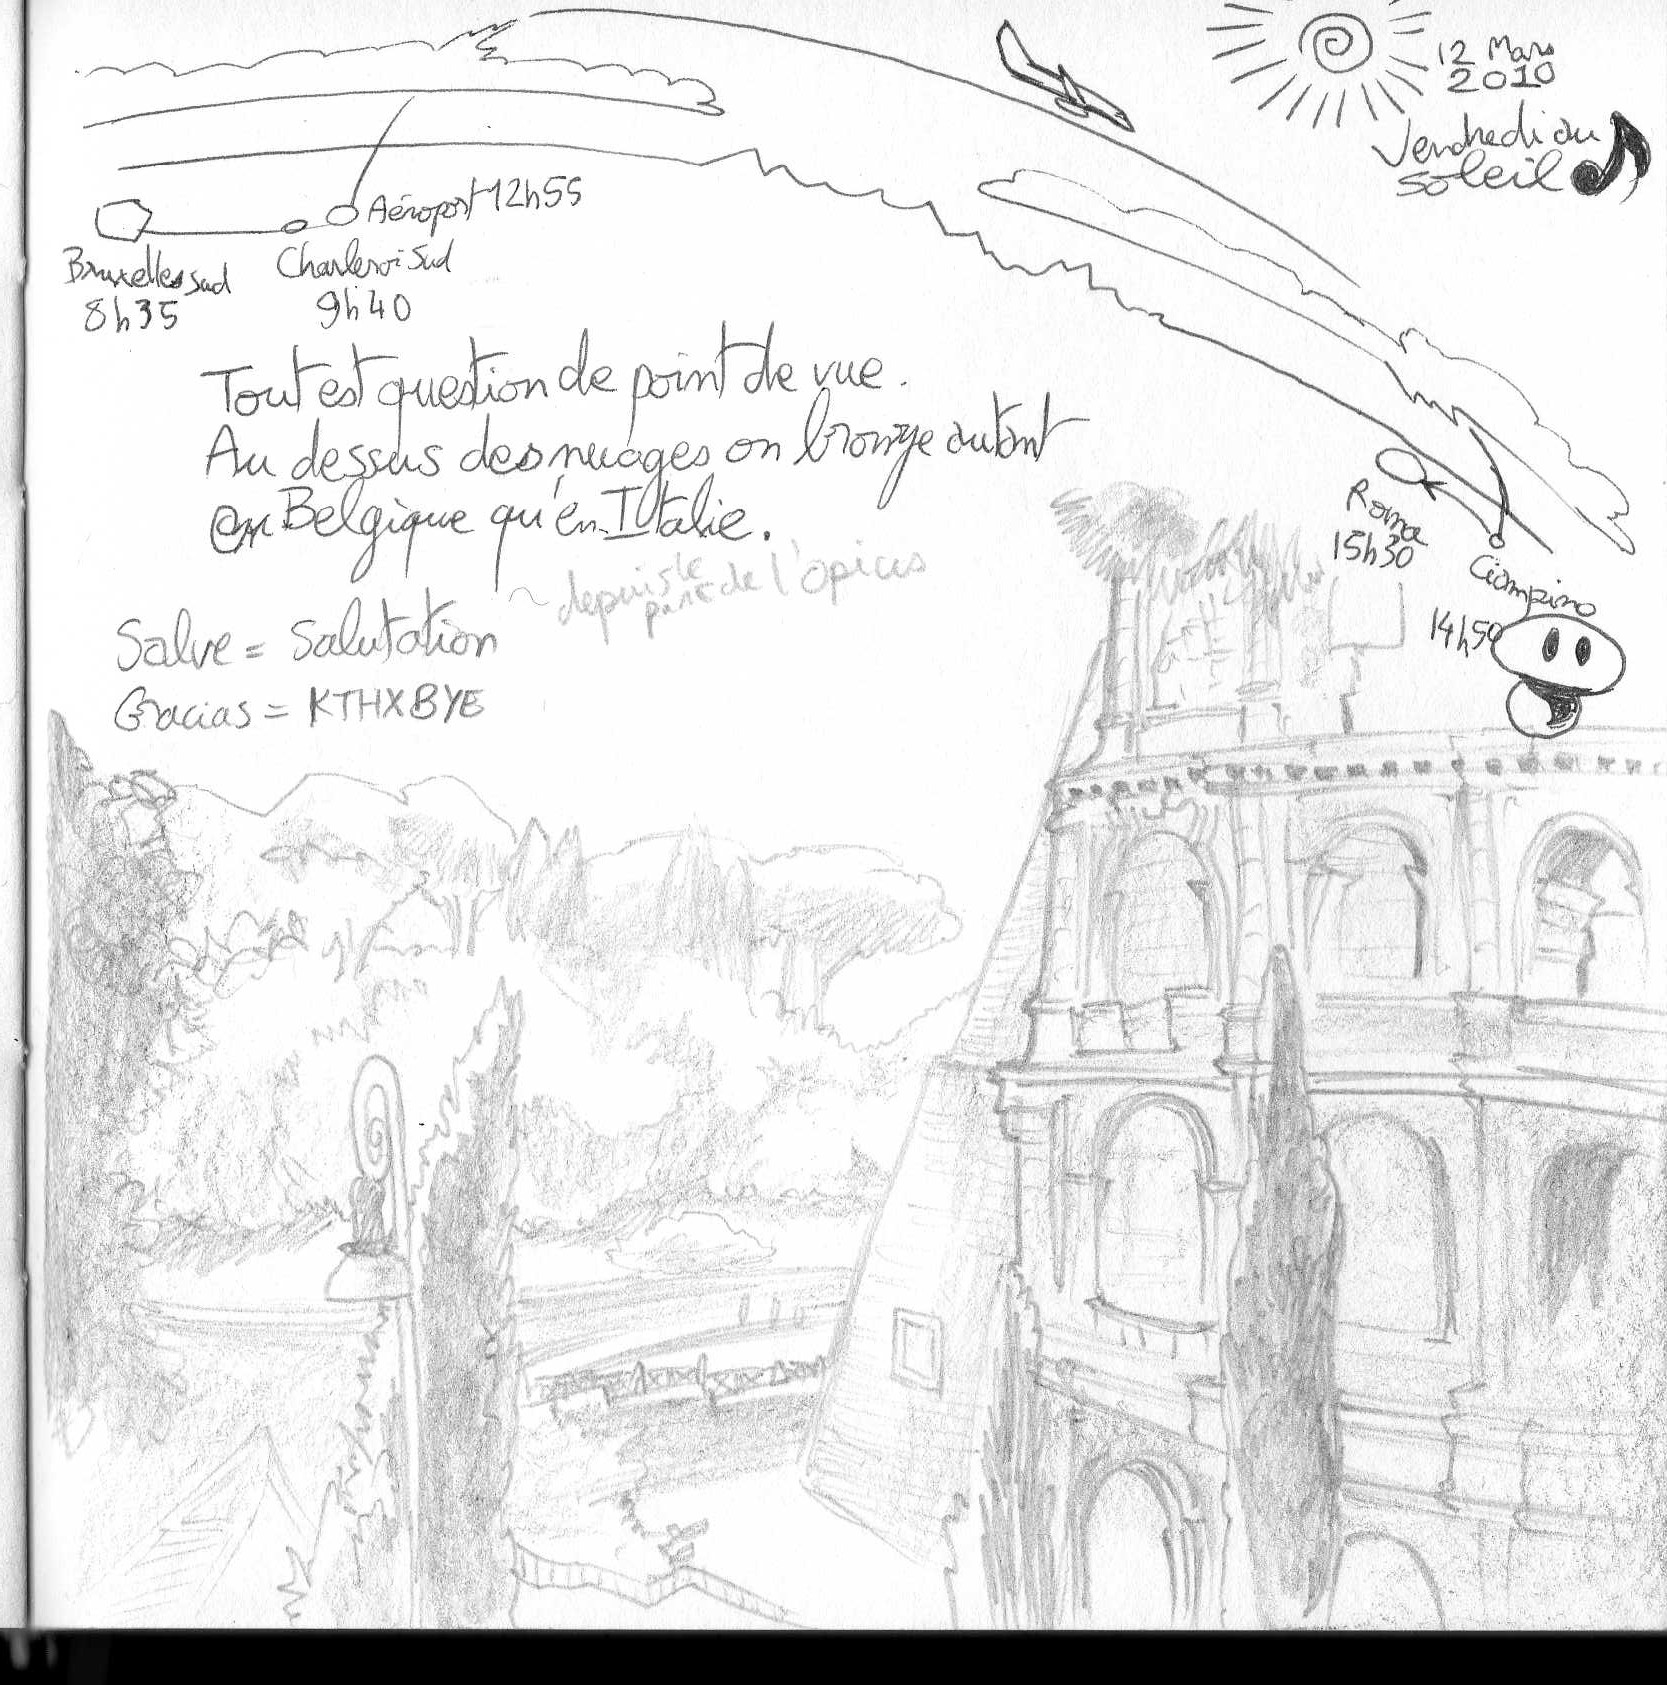 12 Mars
2010
Vendredi au
soleil
Aéroport 12h55
Bruxelles sud
8h35
Charleroi Sud
9h40
Tout est question de point de vue.
Au dessus des nuages on bronze autant
en Belgique qu'en Italie.
Roma
15h30
Ciampino
14h50
~ depuis le parc de l'opicus
Salve = Salutation
Gracias = KTHXBYE